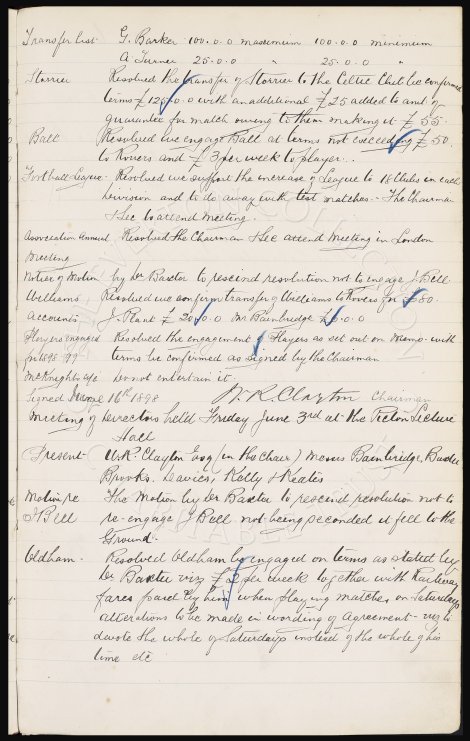 Transfer List G. Barker 100.0.0 maximum 100.0.0 minimum
A Turner 25.0.0 " 25.0.0 "
Storrier Resolved the transfer of Storrier to the Celtic Club be confirmed
terms £125.0.0 with an additional £25 added to amt of
guarantee for match owing to them making it £55.
Ball Resolved we engage Ball at terms not exceeding £50
to Rovers and £3 per week to player.
Football League Resolved we support the increase of League to 18 Clubs in each
Division and to do away with test matches - The Chairman
& Sec to attend meeting.
Association Annual Resolved the Chairman & Sec attend Meeting in London
Meeting
Notice of Motion by Dr Baxter to rescind resolution not to engage J. Bell
Williams Resolved we confirm transfer of Williams to Rovers for £80.
Accounts J. Plant £20.0.0 Mr Bainbridge £5.0.0
Players engaged Resolved the engagement of Players as set out on memo with
for 1898-99 terms be confirmed as signed by the Chairman
McKnights do not entertain it
Signed June 16th 1898 W. R. Clayton Chairman
Meeting of Directors held Friday June 3rd at the Picton Lecture
Hall
Present W.R. Clayton Esq (in the Chair) Messrs Bainbridge, Baxter
Brooks. Davies, Kelly & Keates
Motion re The Motion by Dr Baxter to rescind resolution not to
J Bell re-engage J Bell not being seconded it fell to the
Ground.
Oldham. Resolved Oldham be engaged on terms as stated by
Dr Baxter viz £2 per week together with Railway
fares paid by him when playing matches on Saturdays
alterations to be made in wording of Agreement - viz to
devote the whole of Saturdays instead of the whole of his
time etc